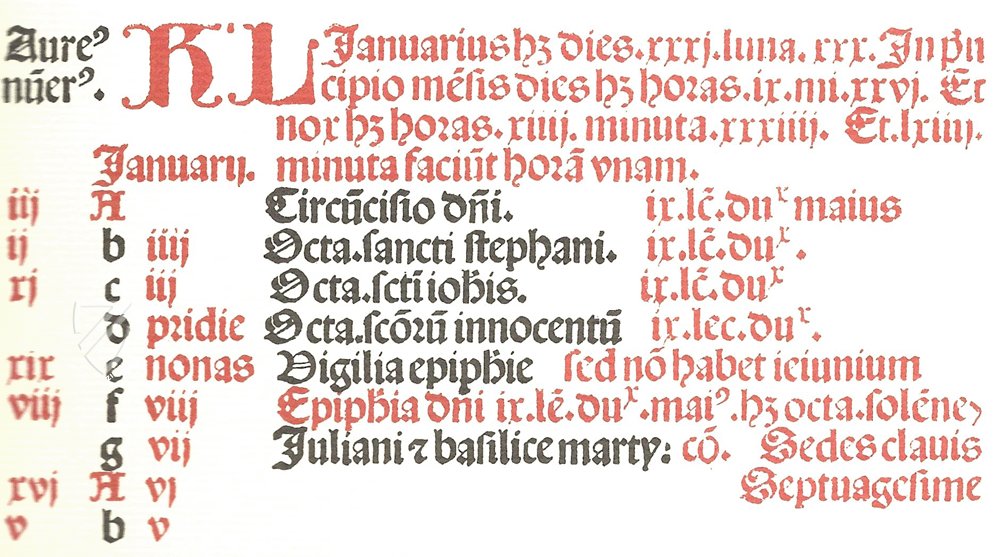 Aureꝰ KL Januarius hꝫ dies.xxxj.luna.xxx. In pⁱn
nūerꝰ. cipio mēsis dies hꝫ horas.ix.mi.xxvj. Et
nox hꝫ horas.xiiij.minuta.xxxiiij. Et.lxiiij.
Januarij. minuta faciūt horā vnam.
iij A Circūcisio dñi. ix.lc̄.duˣ maius
ij b iiij Octa.sancti stephani. ix.lc̄.duˣ.
xj c iij Octa.scti iohis. ix.lc̄.duˣ
d pridie Octa.scōrū innocentū ix.lec.duˣ.
xix e nonas Vigilia epiphie sed nō habet ieiunium
viij f viij Epiphia dñi ix.lc̄.duˣ.maiꝰ.hꝫ octa.solēne
g vij Juliani ⁊ basilice marty: cō. Sedes clauis
xvj A vj Septuagesime
v b v